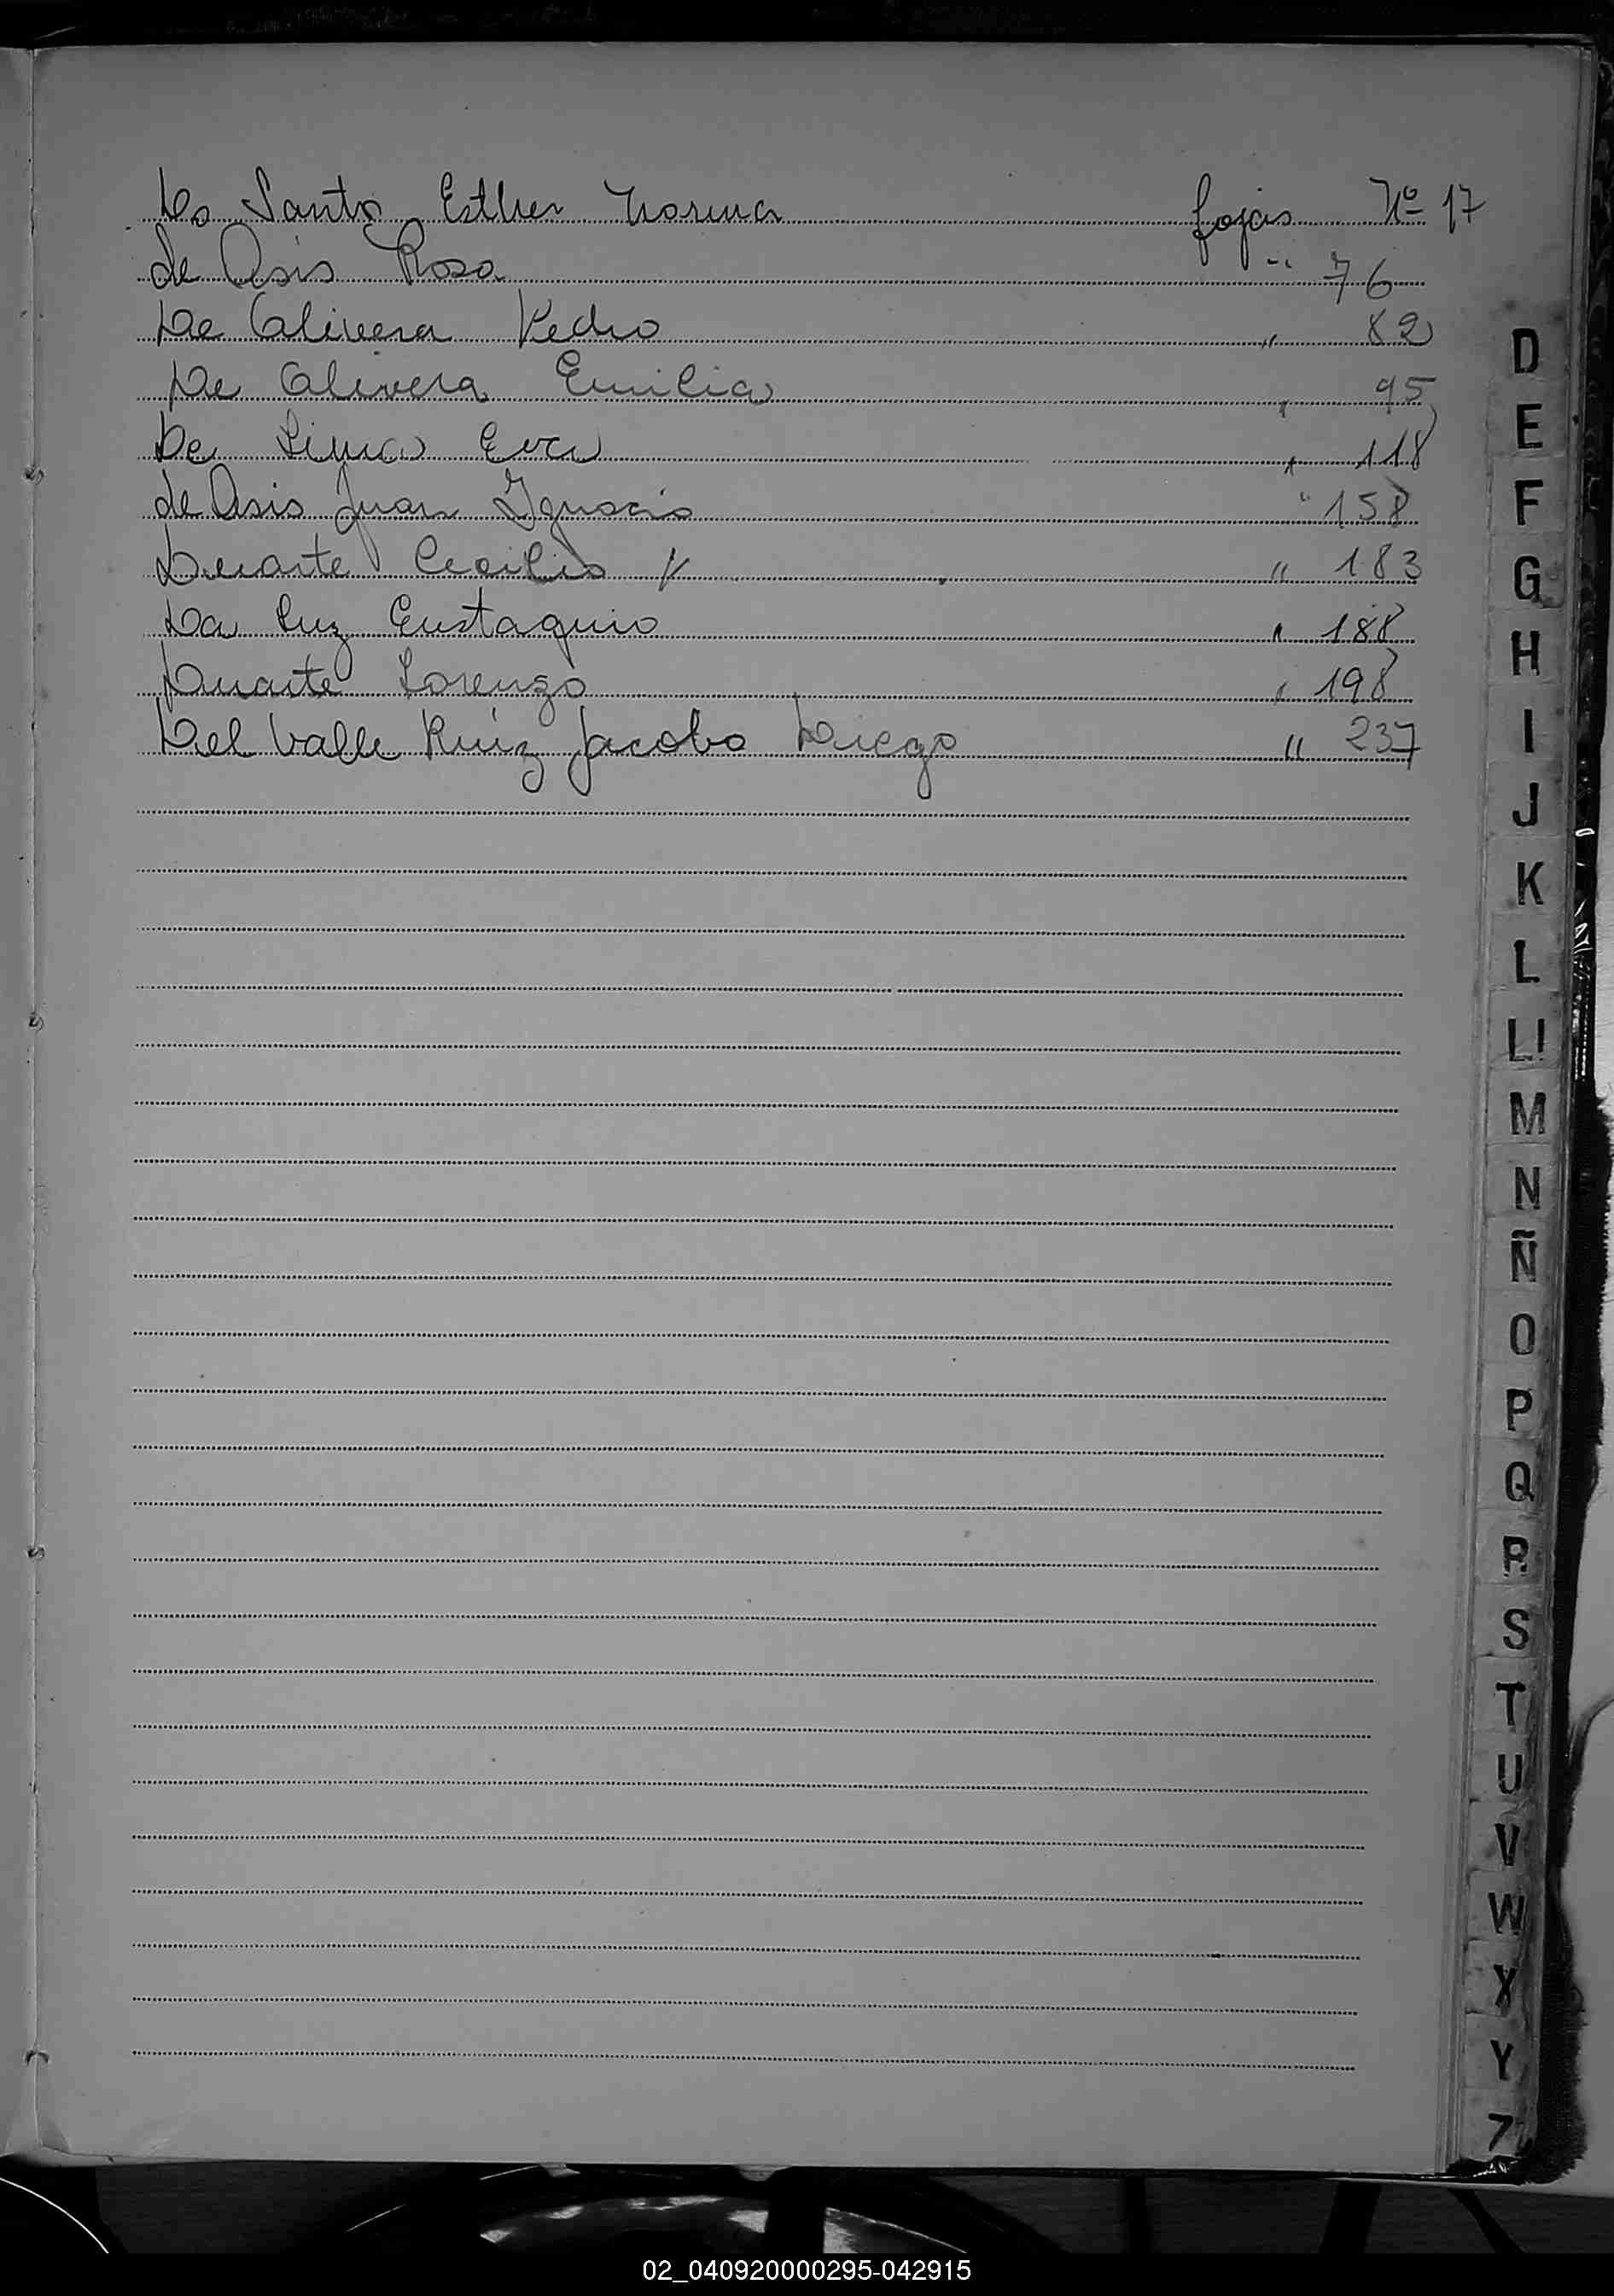 Do Santo Esther Norma fojas Nº 17
de Asis Rosa " 76
De Olivera Pedro " 82
De Olivera Emilia " 95
De Lima Eva " 118
de Asis Juan Ignacio " 158
Duarte Cecilio V " 183
Da Luz Eustaquio " 188
Duarte Lorenzo " 198
Del Valle Ruiz Jacobo Diego " 237
D
E
F
G
H
I
J
K
L
Ll
M
N
Ñ
O
P
Q
R
S
T
U
V
W
X
Y
Z
02_040920000295-042915